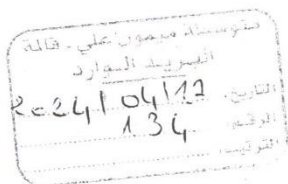 متوسطة ميمون علي - قالمة
البريد الوارد
التاريخ: 2024/04/17
الرقم: 134
الترتيب: